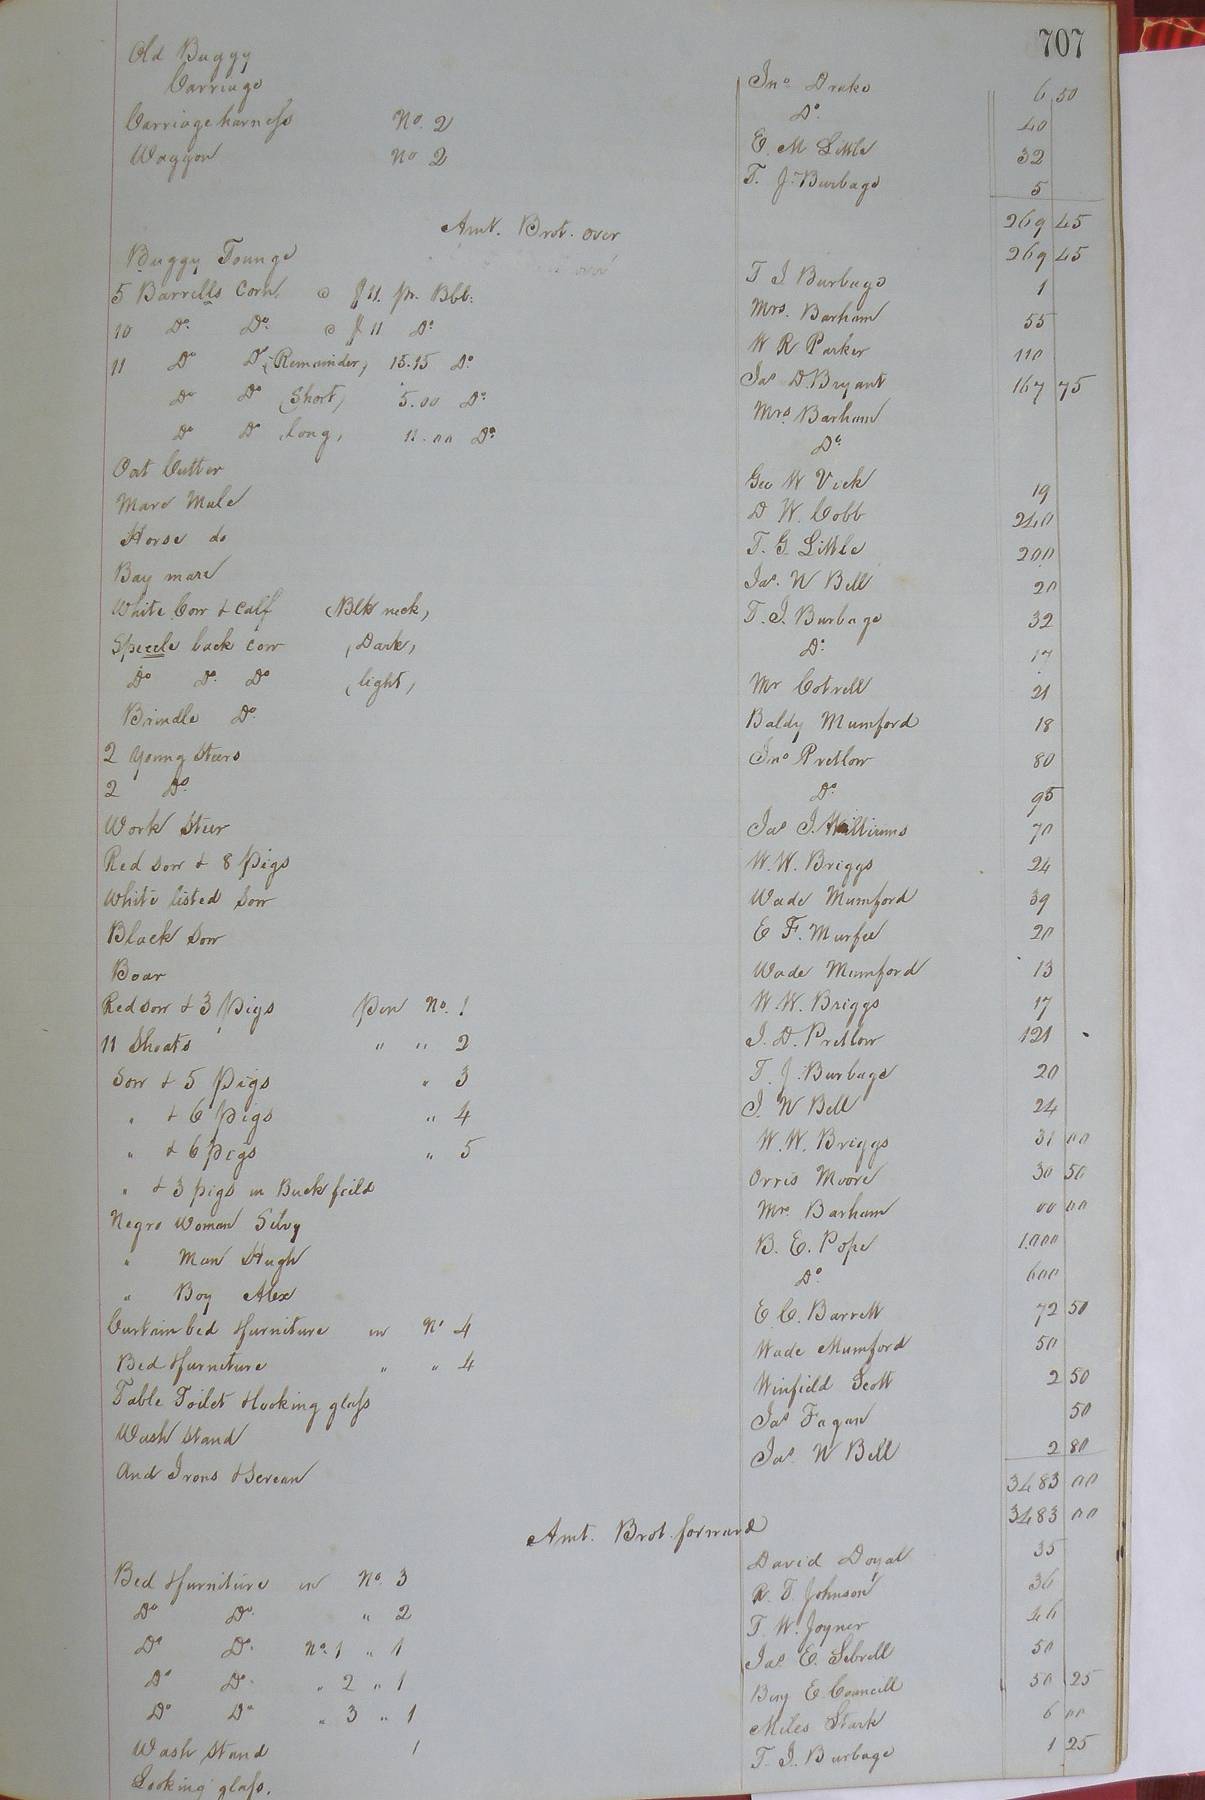 707
Old Buggy Jno. Drake 6 50
Carriage Do. 40
Carriage harness No. 2 E. M Little 32
Waggon No 2 T. J. Burbage 5
269 45
Amt. Brot. over 269 45
Buggy Tounge T J Burbage 1
5 Barrells Corn @ $11. pr. Bbl: Mrs. Barham 55
10 Do. Do. @ $11 Do W R Parker 110
11 Do Do (Remainder) 15.15 Do Jas D. Bryant 167 75
Do Do (Short) 5.00 Do Mrs. Barham
Do Do (long) 11.00 Do Do.
Oat Cutter Geo W Vick 19
Mare Mule D W. Cobb 240
Horse do T. G. Little 200
Bay mare Jas. W Bell 20
White Cow & Calf (Blk neck) T. J. Burbage 32
Speccle back cow (Dark) Do. 17
Do Do. Do (light) Mr Cotrell 21
Brindle Do. Baldy Mumford 18
2 Young Steers Jno Pretlow 80
2 Do. Do. 95
Work Steer Jas J. Williams 70
Red Sow & 8 Pigs W. W. Briggs 24
White listed Sow Wade Mumford 39
Black Sow E F. Murfee 20
Boar Wade Mumford 13
Red sow & 3 Pigs Pen No. 1 W. W. Briggs 17
11 Shoats " " 2 J. D. Pretlow 121
Sow & 5 Pigs " 3 T. J. Burbage 20
" & 6 Pigs " 4 J. W Bell 24
" & 6 Pigs " 5 W. W. Briggs 31 00
" & 3 pigs in Buck feild Orris Moore 30 50
Negro Woman Silvy Mrs. Barham 00 00
" Man Hugh B. E. Pope 1.000
" Boy Alex Do. 600
Curtain bed & furniture in No 4 E. C. Barrett 72 50
Bed & furniture " " 4 Wade Mumford 50
Table Toilet & looking glass Winfield Scott 2 50
Wash Stand Jas Fagan 50
And Irons & Screan Jas. W Bell 2 80
3483 00
Amt. Brot. forward 3483 00
Bed & furniture in No. 3 David Doyal 35
Do Do. " 2 R. T. Johnson 36
Do Do. No. 1 " 1 T. W. Joyner 46
Do Do. " 2 " 1 Jas. E. Sebrell 50
Do Do " 3 " 1 Benj E. Councill 50 25
Wash Stand 1 Miles Stark 6 00
Looking glass. T. J. Burbage 1 25